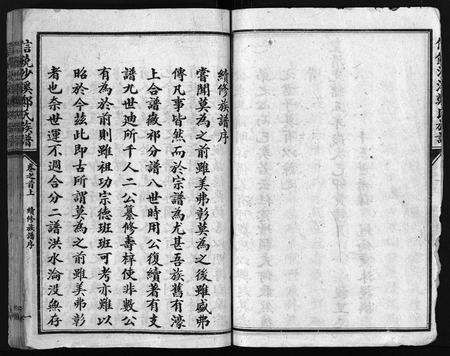 續修族譜序
嘗聞莫為之前雖美弗彰莫為之後雖盛弗
傳凡事皆然而於宗譜為尤甚吾族舊有濠
上合譜厥祁分譜八世時用公復續著有支
譜九世廸所千人二公纂修壽梓使非數公
有為於前則雖祖功宗德班班可考亦難以
昭於今茲此即古所謂莫為之前雖美弗彰
者也奈世運不遇合分二譜洪水淪没無存
信饒沙溪鄭氏族譜
卷之首上
續修族譜序
一